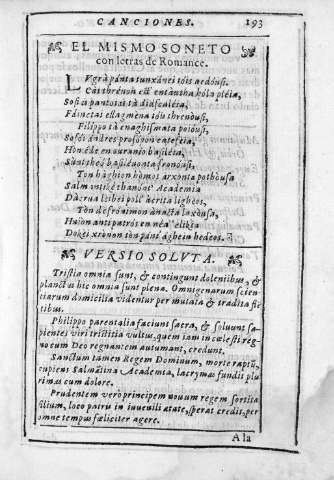 CANCIONES. 193
EL MISMO SONETO
con letras de Romance.
LVgrà pánta tunxánei tóis aedôusi.
Cài thrênôn est entáutha hóla pléia,
Sofia pantos
Fáinetai
Filippo tà enaghísmata poiôusi,
Sofói ándres prosôpon
Hon éide en ouranôn basiléia,
basiléuonta fronôusi.
Ton hághion hómos arxonta pothôusa
Academia
Dácrua
Ton de frónimon
Haîon antì patrós en
Dokêi xrónon tòn pant' ághein hedeos.
VERSIO SOLVTA.
Tristia omnia sunt, & contingunt dolentibus, &
planctus hic omnia sunt plena. Omnigenarum scien
tiarum domicilia videntur per mutata & tradita fle
tibus.
Philippo parentalia faciunt sacra, & soluunt sa-
pientes viri tristitia vultus, quem iam in cælesti reg-
no cum Deo regnantem autumant, credunt.
Sanctum tamen Regem Dominum, morte raptũ,
cupiens Salmãtina Academia, lacrymas fundit plu
rimas cum dolore.
Prudentem vero principem nouum regem sortita
filium, loco patris in iuuenili ætate, sperat credit, per
omne tempus fœliciter agere.
A la